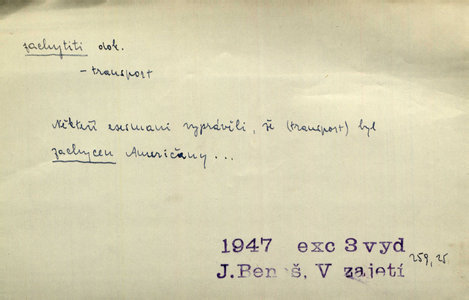 zachytiti dok.
– transport
Někteří internovaní vyprávěli, že (transport) byl
zachycen Američany ...
1947 exc 3 vyd
J. Beneš, V zajetí 259, 25.